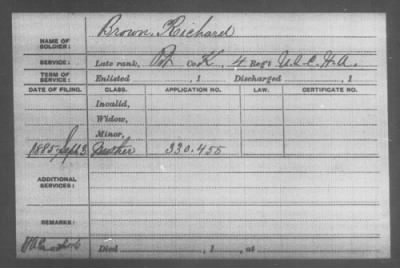 Brown, Richard
NAME OF SOLDIER:
SERVICE: Late rank, Pvt Co. K, 4 Regt U.S.C.H.A.
TERM OF SERVICE: Enlisted , 1 Discharged , 1
DATE OF FILING. CLASS. APPLICATION NO. LAW. CERTIFICATE NO.
Invalid,
Widow,
Minor,
1885 Sept 3 Mother 330.455
ADDITIONAL SERVICES:
REMARKS:
Died , 1 , at